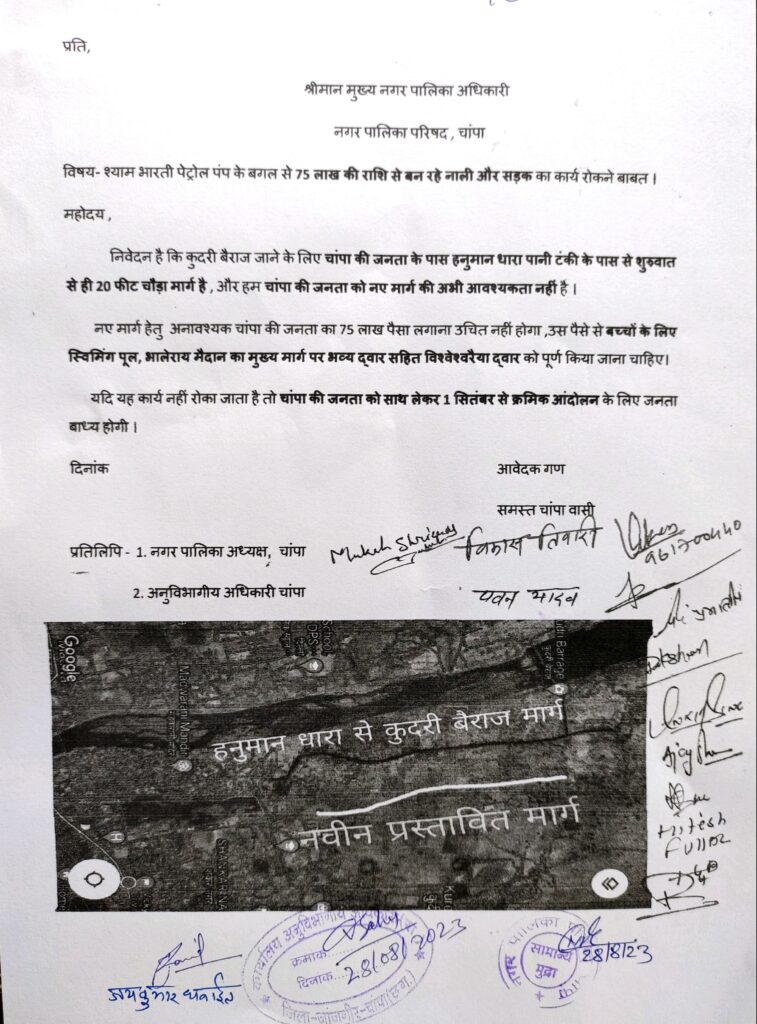 प्रति,
श्रीमान मुख्य नगर पालिका अधिकारी
नगर पालिका परिषद , चांपा
विषय- श्याम भारती पेट्रोल पंप के बगल से 75 लाख की राशि से बन रहे नाली और सड़क का कार्य रोकने बाबत ।
महोदय ,
निवेदन है कि कुदरी बैराज जाने के लिए चांपा की जनता के पास हनुमान धारा पानी टंकी के पास से शुरुवात
से ही 20 फीट चौड़ा मार्ग है , और हम चांपा की जनता को नए मार्ग की अभी आवश्यकता नहीं है ।
नए मार्ग हेतु अनावश्यक चांपा की जनता का 75 लाख पैसा लगाना उचित नहीं होगा ,उस पैसे से बच्चों के लिए
स्विमिंग पूल, भालेराय मैदान का मुख्य मार्ग पर भव्य द्वार सहित विश्वेश्वरैया द्वार को पूर्ण किया जाना चाहिए।
यदि यह कार्य नहीं रोका जाता है तो चांपा की जनता को साथ लेकर 1 सितंबर से क्रमिक आंदोलन के लिए जनता
बाध्य होगी ।
दिनांक आवेदक गण
समस्त चांपा वासी
प्रतिलिपि - 1. नगर पालिका अध्यक्ष, चांपा
Mukesh विकास तिवारी
2. अनुविभागीय अधिकारी चांपा
पवन यादव
Google
हनुमान धारा से कुदरी बैराज मार्ग
नवीन प्रस्तावित मार्ग
Hitesh
कार्यालय अनुविभागीय
क्रमांक
दिनांक 28/08/2023
जिला-जांजगीर-चांपा(छ.ग.)
सामान्य
मुद्रा
28/8/23